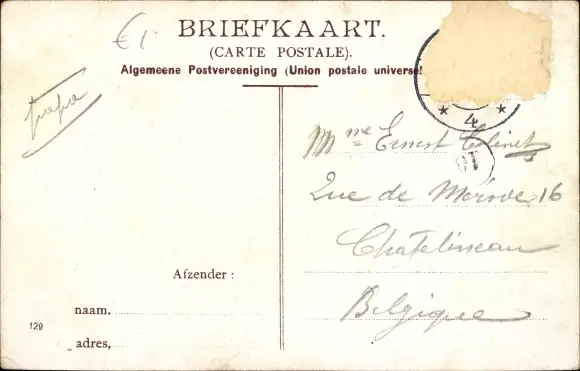 €1-
BRIEFKAART.
(CARTE POSTALE).
Algemeene Postvereeniging (Union postale universel
4
papa
Mme Ernest Colinet
10
Rue de Merode, 16
Chatelineau
Belgique
Afzender :
naam.
129
adres,